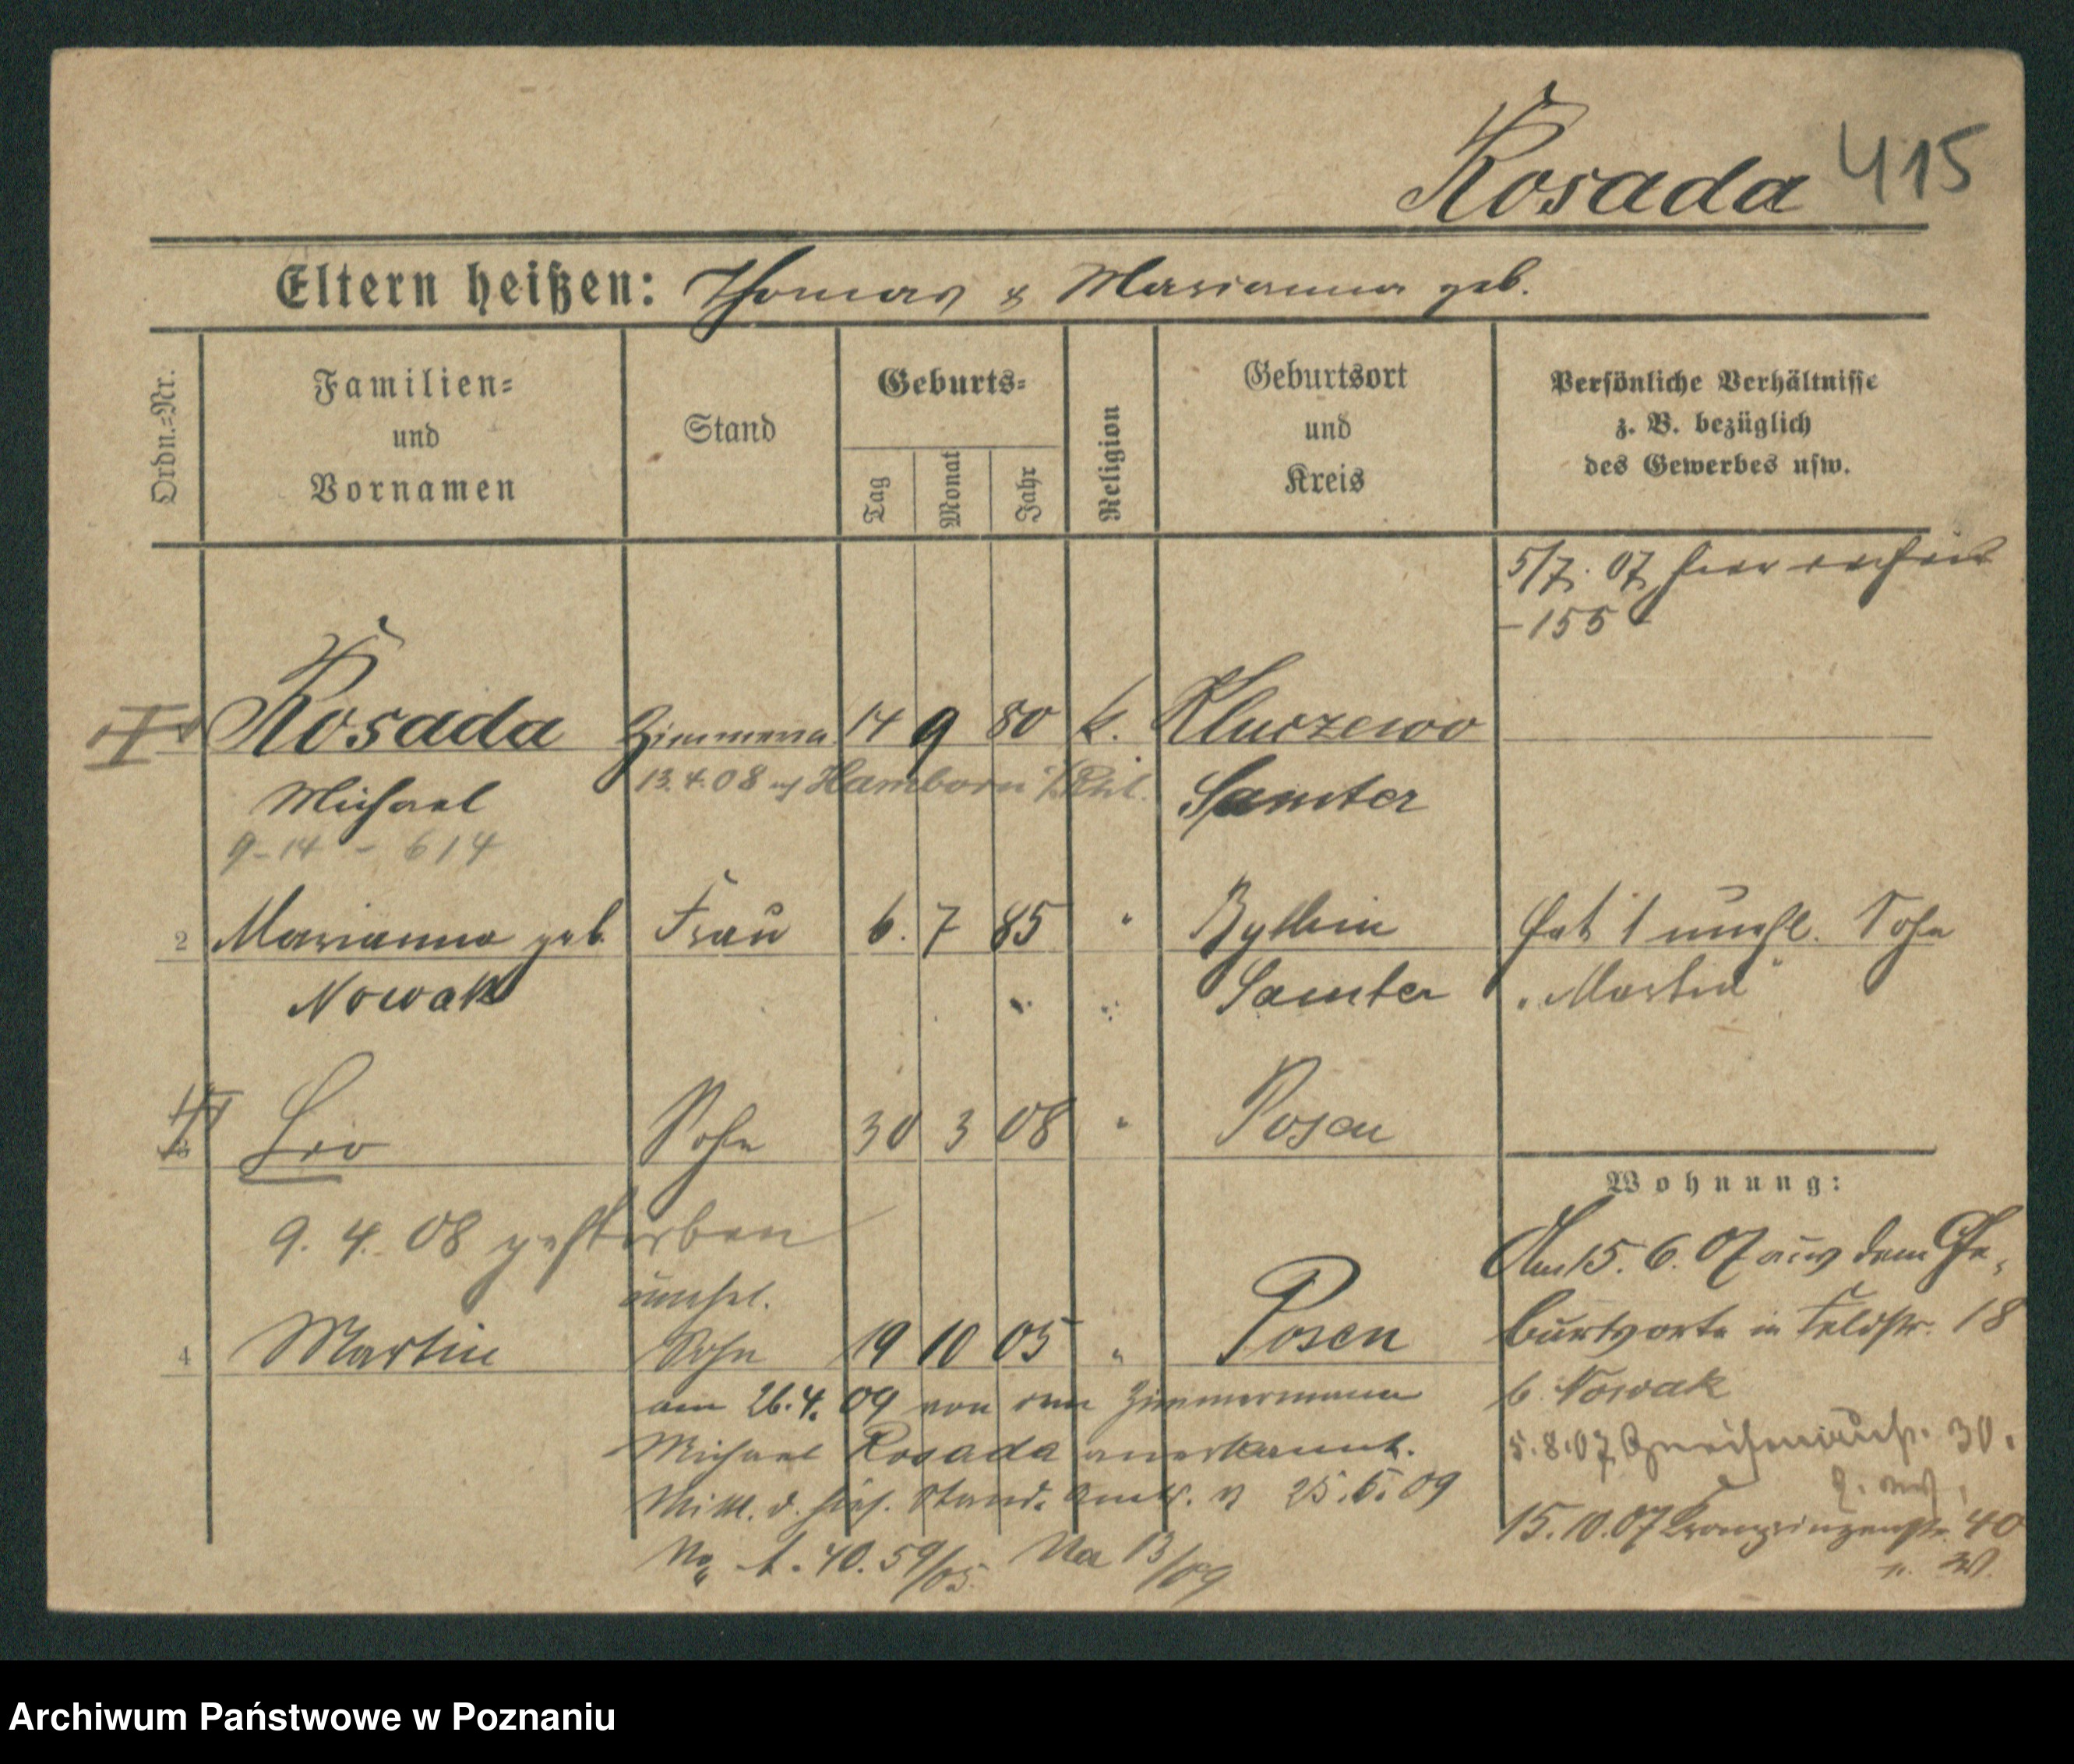 Rosada 415
Eltern heißen: Thomas & Marianna geb.
Ordn.=Nr.
Familien=
und
Vornamen
Stand
Geburts=
Tag
Monat
Jahr
Religion
Geburtsort
und
Kreis
Persönliche Verhältnisse
z. B. bezüglich
des Gewerbes usw.
5/7. 07 hier
-155-
Rosada Zimmerma 14 9 80 k. Kluczewo
13.4.08 Hamborn
Michael Samter
9-14 - 614
2 Marianna geb. Frau 6. 7 85 " Bythin hat 1 unehl. Sohn
Nowak Samter "Martin"
Leo Sohn 30 3 08 " Posen
Wohnung:
9. 4. 08 gestorben
Am 15. 6. 07 aus dem Ge-
unehel.
4 Martin Sohn 19 10 05 " Posen
burtsorte in Feldstr. 18
b. Nowak
am 26.4.09 von dem Zimmermann
Michael Rosada anerkannt.
5.8.07 Gneisenaustr. 30.
Mittl. d. hies. Stand. Amts. v 25.5.09
15.10.07 Kronprinzenstr. 40
13/09
Archiwum Państwowe w Poznaniu